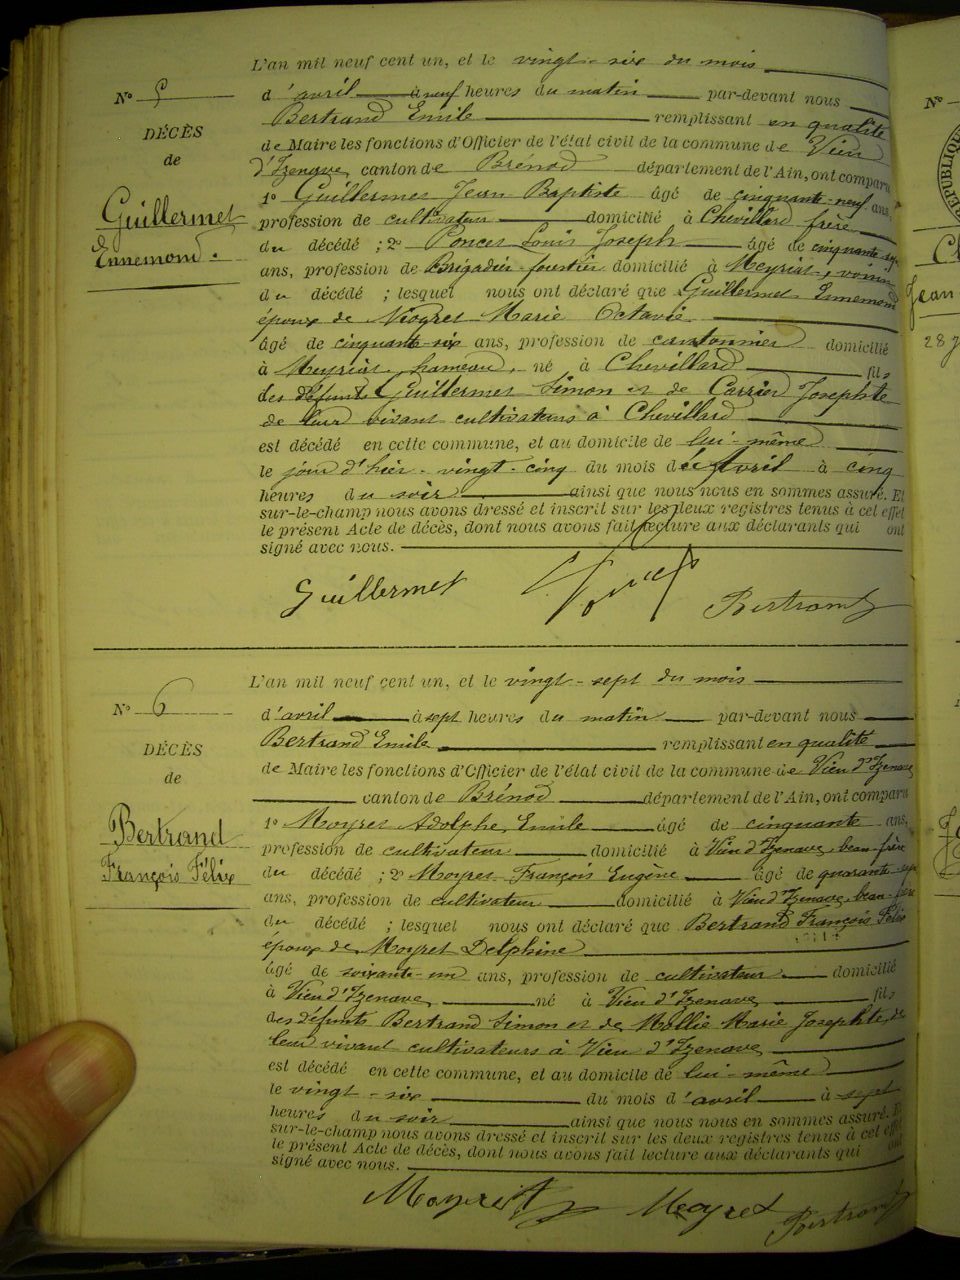 L'an mil neuf cent un, et le vingt-six du mois
N° 5
d'avril à neuf heures du matin par-devant nous
Bertrand Emile remplissant en qualité
DÉCÈS
de Maire les fonctions d'Officier de l'état civil de la commune de Vieu
de
d'Izenave canton de Brénod département de l'Ain, ont comparu
Guillermet
Ennemond.
1° Guillermet Jean Baptiste âgé de cinquante-neuf ans,
profession de cultivateur domicilié à Chevillard frère
du décédé ; 2° Poncet Louis Joseph âgé de cinquante
ans, profession de Brigadier-forestier domicilié à Meyriat, voisin
du décédé ; lesquel nous ont déclaré que Guillermet Ennemond
époux de Niogret Marie Octavie
âgé de cinquante-six ans, profession de cantonnier domicilié
à Meyriat, hameau, né à Chevillard fils
des défunts Guillermet Simon et de Carrier Josephte
de leur vivant cultivateurs à Chevillard
est décédé en cette commune, et au domicile de lui-même
le jour d'hier vingt-cinq du mois d'avril à cinq
heures du soir ainsi que nous nous en sommes assuré. Et
sur-le-champ nous avons dressé et inscrit sur les deux registres tenus à cet effet
le présent Acte de décès, dont nous avons fait lecture aux déclarants qui ont
signé avec nous.
Guillermet Poncet Bertrand
L'an mil neuf cent un, et le vingt-sept du mois
N° 6
d'avril à sept heures du matin par-devant nous
Bertrand Emile remplissant en qualité
DÉCÈS
de Maire les fonctions d'Officier de l'état civil de la commune de Vieu d'Izenave
de
canton de Brénod département de l'Ain, ont comparu
Bertrand
François Félix
1° Moyret Adolphe Emile âgé de cinquante ans,
profession de cultivateur domicilié à Vieu d'Izenave, beau-frère
du décédé ; 2° Moyret François Eugène âgé de quarante
ans, profession de cultivateur domicilié à Vieu d'Izenave, beau-frère
du décédé ; lesquel nous ont déclaré que Bertrand François Félix
époux de Moyret Delphine
âgé de soixante-un ans, profession de cultivateur domicilié
à Vieu d'Izenave né à Vieu d'Izenave fils
des défunts Bertrand Simon et de Mollie Marie Josephte, de
leur vivant cultivateurs à Vieu d'Izenave
est décédé en cette commune, et au domicile de lui-même
le vingt-six du mois d'avril à sept
heures du soir ainsi que nous nous en sommes assuré. Et
sur-le-champ nous avons dressé et inscrit sur les deux registres tenus à cet effet
le présent Acte de décès, dont nous avons fait lecture aux déclarants qui ont
signé avec nous.
Moyret Moyret Bertrand
N°
RÉPUBLIQUE
Jean